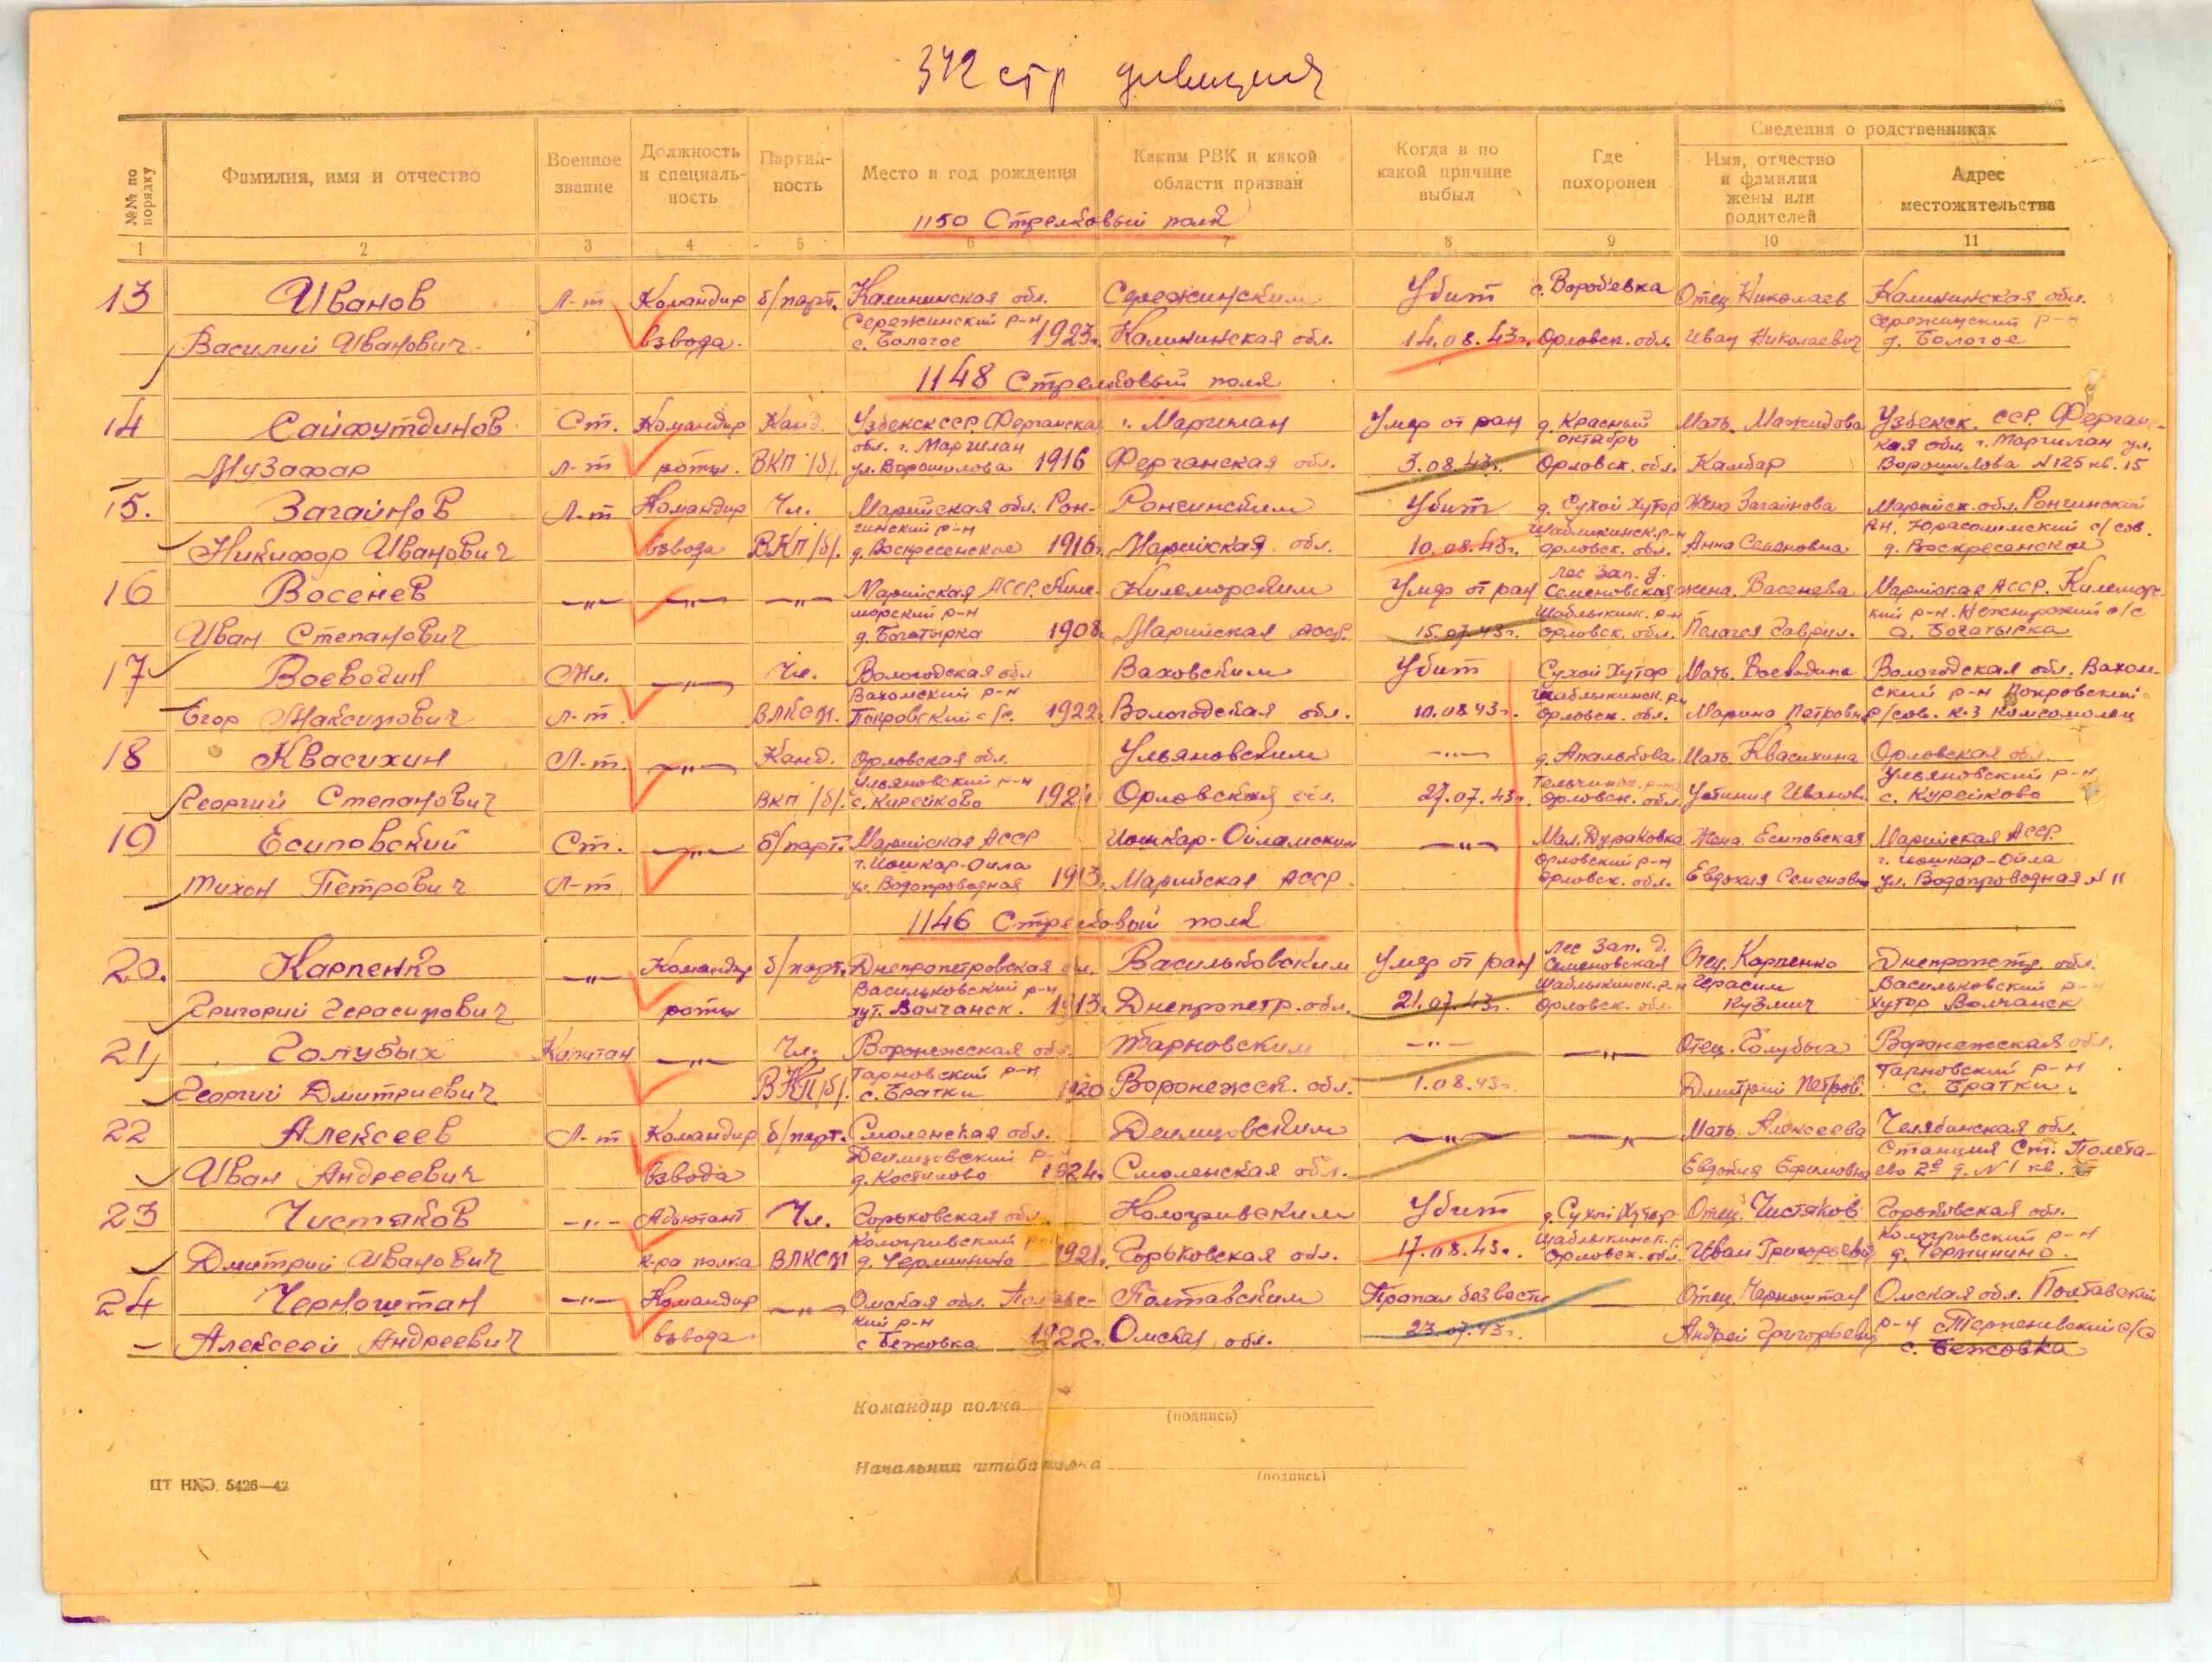 342 стр дивизия
№№ по порядку
Фамилия, имя и отчество
Военное звание
Должность и специальность
Партийность
Место и год рождения
Каким РВК и какой области призван
Когда и по какой причине выбыл
Где похоронен
Сведения о родственниках
Имя, отчество и фамилия жены или родителей
Адрес местожительства
1150 Стрелковый полк
1 2 3 4 5 6 7 8 9 10 11
13 Иванов Л-т Командир б/парт. Калининская обл. Сережинским Убит с. Воробьевка Отец Николаев Калининская обл.
Сережинский р-н Сережинский р-н
Василий Иванович взвода. с. Бологое 1923г. Калининская обл. 14.08.43г. Орловск. обл. Иван Николаевич д. Бологое
1148 Стрелковый полк
14 Сайфутдинов Ст. Командир Канд. Узбекск ССР Ферганска г. Маргилан Умер от ран д. Красный Мать Мажидова Узбекск. ССР. Ферган-
обл. г. Маргилан октябрь ская обл. г. Маргилан ул.
Музафар л-т роты. ВКП /б/. ул. Ворошилова 1916 Ферганская обл. 3.08.43г. Орловск. обл. Камбар Ворошилова №125 кв. 15
15. Загайнов Л-т Командир Чл. Марийская обл. Рон- Ронгинским Убит д. Сухой Хутор Жена Загайнова Марийск. обл. Ронгинский
гинский р-н Шаблыкинск. р-н с/сов.
Никифор Иванович взвода ВКП /б/. д. Воскресенское 1916г. Марийская обл. 10.08.43г. Орловск. обл. Анна Семеновна д. Воскресенское
16 Восенев —„— —„— —„— Марийская АССР. Киле- Килеморским Умер от ран Лес зап. д. Семеновская жена. Васенева Марийская АССР. Килемор-
морский р-н Шаблыкинск. р-н кий р-н
Иван Степанович д. Богатырка 1908г. Марийская АССР. 15.07.43г. Орловск. обл. Пелагея Гаврил. д. Богатырка
17 Воеводин Мл. —„— Чл. Вологодская обл Ваховским Убит Сухой Хутор Мать. Воеводина Вологодская обл. Вахом-
Вахомский р-н Шаблыкинск. р-н ский р-н Покровский
Егор Максимович л-т. ВЛКСМ. Покровский с/с. 1922г. Вологодская обл. 10.08.43г. Орловск. обл. Марина Петровн с/сов. к-з Комсомолец
18 Квасихин Л-т. —„— Канд. Орловская обл. Ульяновским —„— д. Апалькова Мать Квасихина Орловская обл.
Ульяновский р-н Ульяновский р-н
Георгий Степанович ВКП /б/. с. Кирейково Орловская обл. 27.07.43г. Орловск. обл. Устиния Иванов. с. Курейково
19 Есиповский Ст. —„— б/парт. Марийская АССР Иошкар-Ойламским —„— Мал. Дураковка Жена Есиповская Марийская АССР.
г. Иошкар-Оила Орловский р-н г. Иошкар-Ойла
Тихон Петрович Л-т ул. Водопроводная 1913г. Марийская АССР. Орловск. обл. Евдокия Семеновн ул. Водопроводная №11
1146 Стрелковый полк
20. Карпенко —„— Командир б/парт. Днепропетровская обл. Васильковским Умер от ран Лес зап. д. Семеновская Отец. Карпенко Днепропетр. обл.
Васильковский р-н Шаблыкинск. р-н Герасим Васильковский р-н
Григорий Герасимович роты хут. Валчанск. 1913г. Днепропетр. обл. 21.07.43г. Орловск. обл. Кузмич хутор Волчанск
21, Голубых Капитан —„— Чл. Воронежская обл. Тарновским —„— —„— Отец. Голубых Воронежская обл.
Тарновский р-н Тарновский р-н
Георгий Дмитриевич ВКП/б/. с. Братки 1920 Воронежск. обл. 1.08.43г. Дмитрий Петров. с. Братки.
22 Алексеев Л-т Командир б/парт. Смоленская обл. Демидовским —„— —„— Мать. Алексеева Челябинская обл.
Демидовский р- Станция Ст. Полета-
Иван Андреевич взвода д. Костилово 1924г. Смоленская обл. Евдокия Ефимовна ево 2е д. №1 кв.
23 Чистяков —„— Адъютант Чл. Горьковская обл. Кологривским Убит д. Сухой Хутор Отец. Чистяков Горьковская обл.
Кологривский р-н Шаблыкинск. р. Кологривский р-н
Дмитрий Иванович к-ра полка ВЛКСМ д. Черминино 1921г. Горьковская обл. 17.08.43г. Орловск. обл. Иван Григорьевич д. Черминино.
24 Черноштан —„— Командир —„— Омская обл. Полтавс- Полтавским Пропал без вести — Отец. Черноштан Омская обл. Полтавский
кий р-н р-н с/с
Алексей Андреевич взвода. с Бежовка 1922г. Омская обл. 23.07.43г. Андрей Григорьевич с. Бежовка
Командир полка
(подпись)
Начальник штаба полка
(подпись)
ЦТ НКО. 5426—42